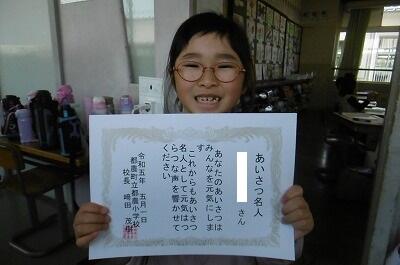 あいさつ名人
さん
あなたのあいさつは
みんなを元気にしま
す
これからもあいさつ
名人として元気はつ
らつな声を響かせて
ください
令和五年 五月一日
都農町立都農小学校
校長 嶋田 茂